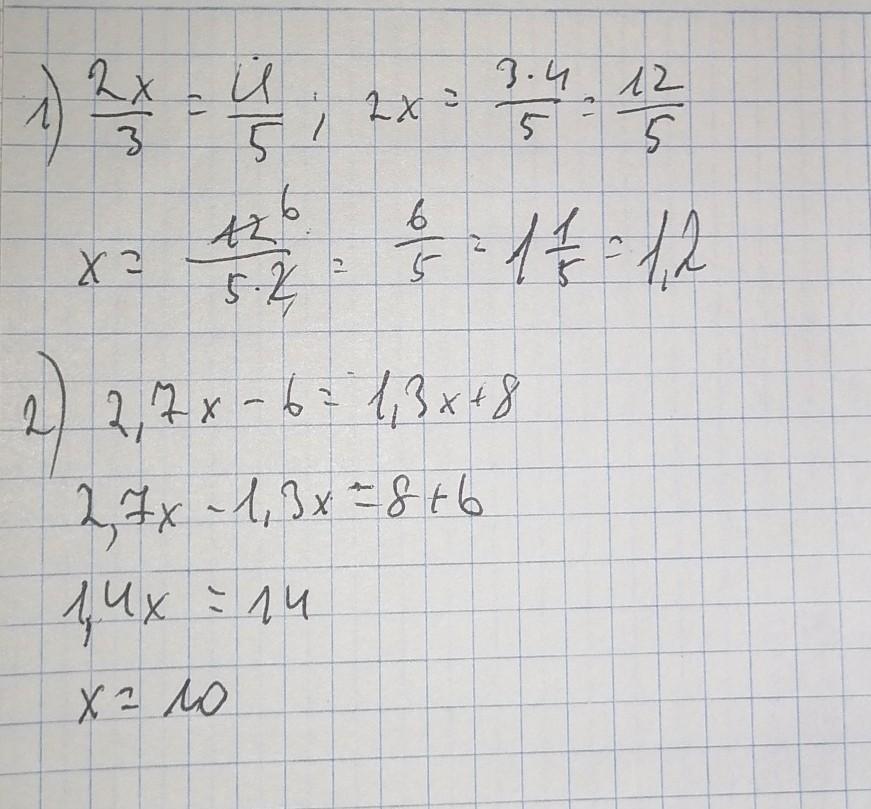 1) 2x/3 = 4/5 ; 2x = 3·4/5 = 12/5
x = 12 6/5·2 = 6/5 = 1 1/5 = 1,2
2) 2,7x - 6 = 1,3x + 8
2,7x - 1,3x = 8 + 6
1,4x = 14
x = 10